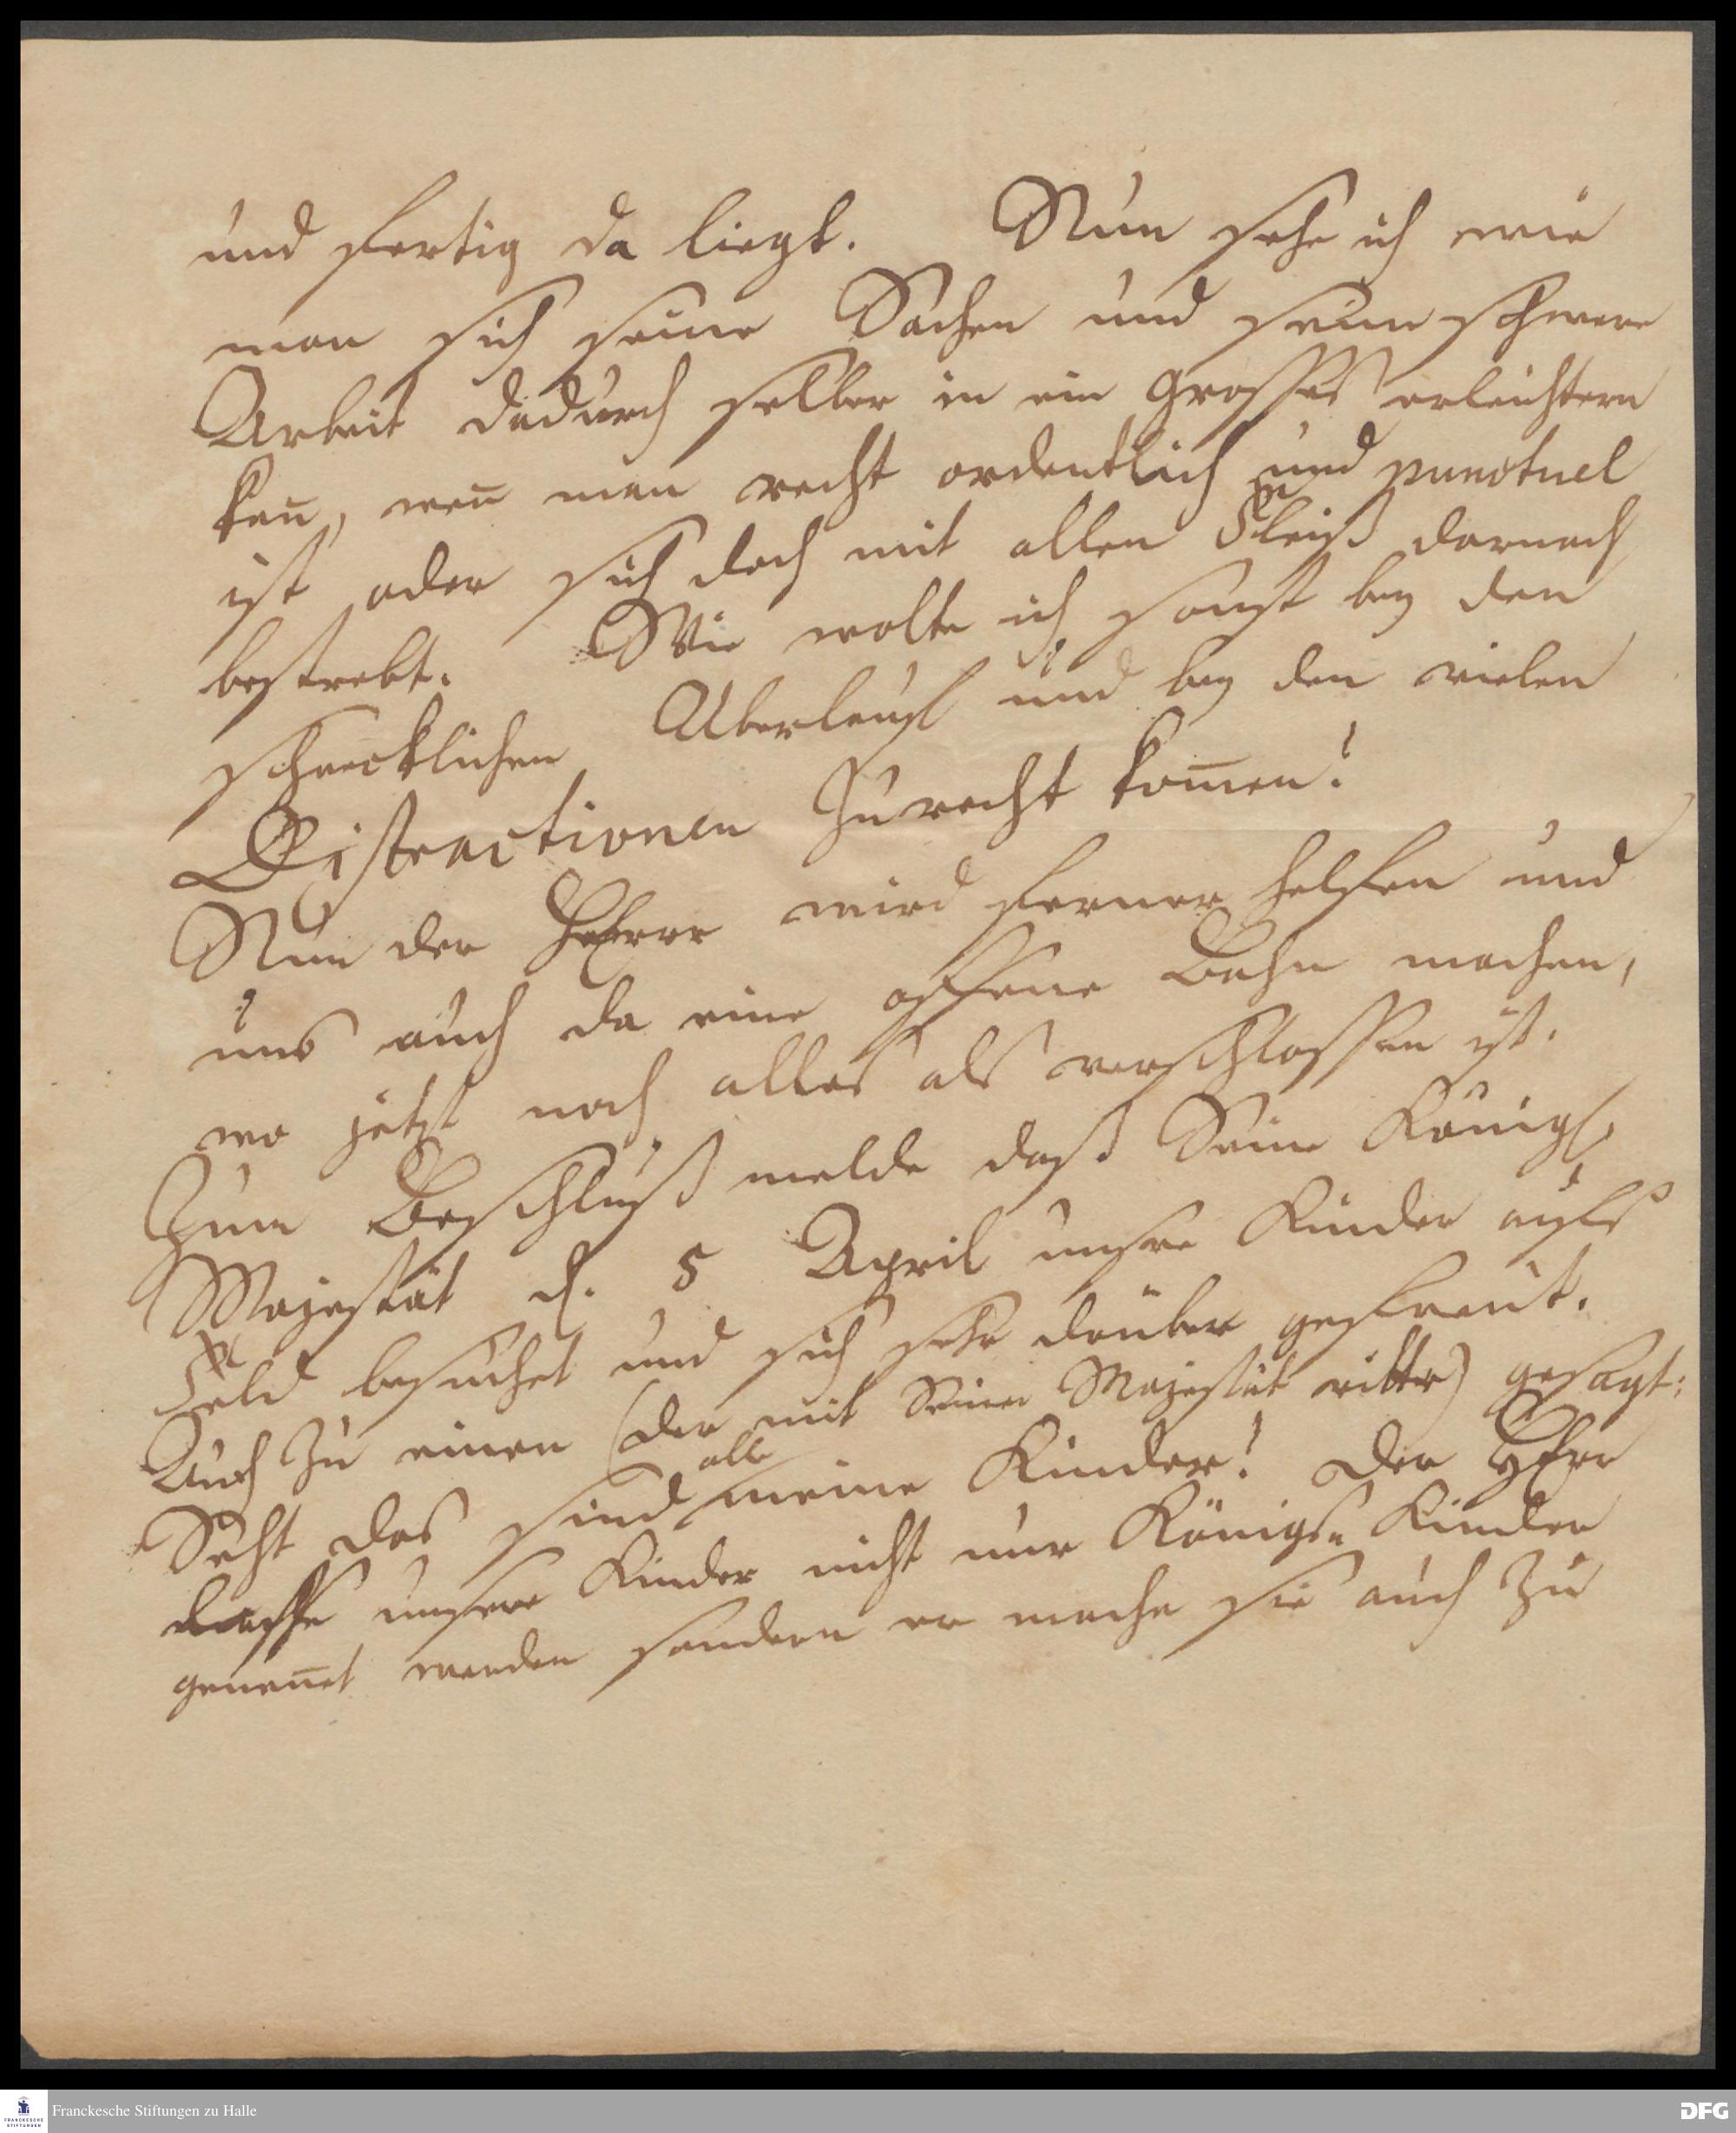 und fertig da liegt. Nun sehe ich wie
man sich seine Sachen und seine schwere
Arbeit dadurch selber in ein grosses erleichtern
kan̅, wen̅ man recht ordentlich und punctuel
ist oder sich doch mit allen Fleiß darnach
bestrebt. Wie wolte ich sonst bey den
schrecklichen Uberlauf und bey den vielen
Distractionen zurecht kom̅en!
Nun der HErr wird ferner helfen und
uns auch da eine offene Bahn machen,
wo jetzt noch alles als verschlossen ist.
Zum Beschluß melde daß Seine Königl.
Majestät d. 5 April unsre Kinder aufs
Feld besuchet und sich sehr drüber gefreut.
Auch zu einen (der mit Seiner Majestät ritte) gesagt:
Seht das sind alle meine Kinder! Der HErr
lasse unsere Kinder nicht nur Königs Kinder
genen̅et werden sondern er mache sie auch zu
Franckesche Stiftungen zu Halle
FRANCKESCHE
STIFTUNGEN
DFG